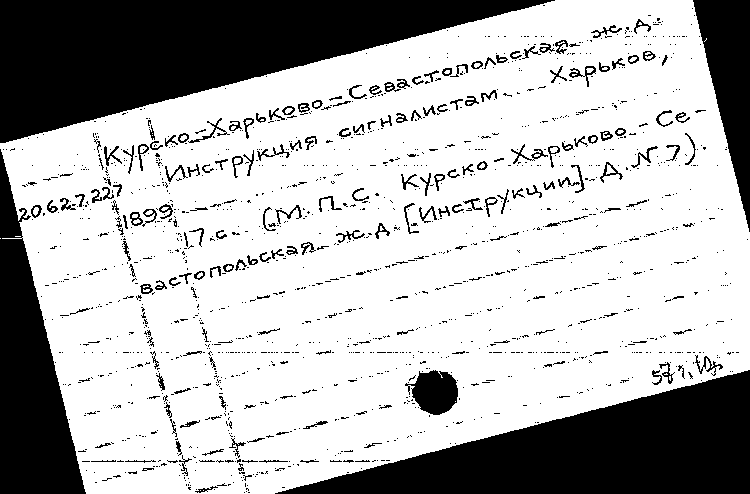 Курско-Харьково-Севастопольская ж.д.
Инструкция сигналистам. Харьков,
20.62.7.227 1899
17.с. (М.П.С. Курско-Харьково-Се-
вастопольская ж.д. [Инструкции] Д. № 7).